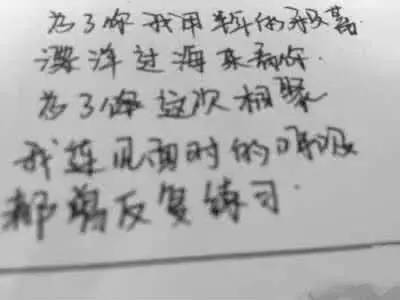 为了你我用半年的积蓄
漂洋过海来看你.
为了你这次相聚
我连见面时的呼吸
都曾反复练习.